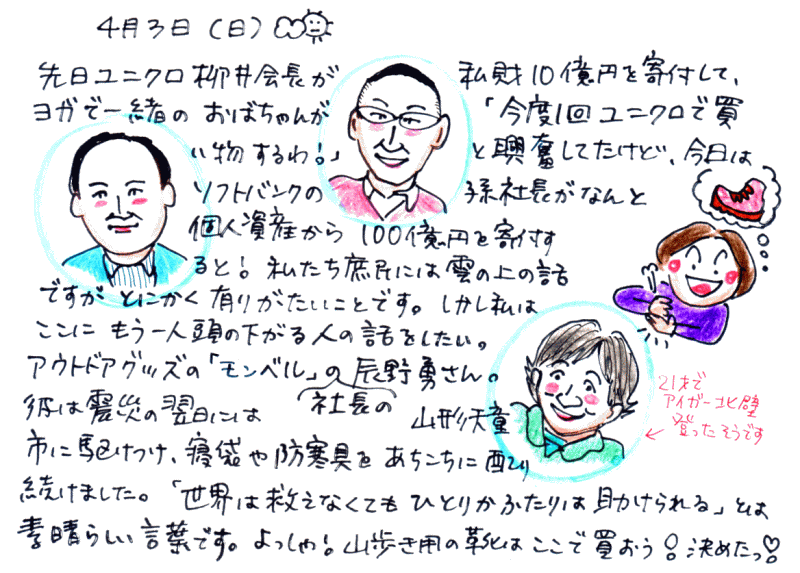 4月3日（日）
先日ユニクロ柳井会長が 私財10億円を寄付して、
ヨガで一緒の おばちゃんが 「今度1回 ユニクロで買
い物するわ！」 と興奮してたけど、今日は
ソフトバンクの 孫社長がなんと
個人資産から 100億円を寄付す
ると！ 私たち庶民には雲の上の話
ですが とにかく有りがたいことです。しかし私は
ここに もう一人頭の下がる人の話をしたい。
アウトドアグッズの「モンベル」の 辰野勇さん。
社長の
彼は震災の翌日には 山形天童
市に駆けつけ、寝袋や防寒具を あちこちに配り
続けました。「世界は救えなくても ひとりかふたりは助けられる」とは
素晴らしい言葉です。よっしゃ！山歩き用の靴はここで買おう！決めたっ！
21才で
アイガー北壁
登ったそうです